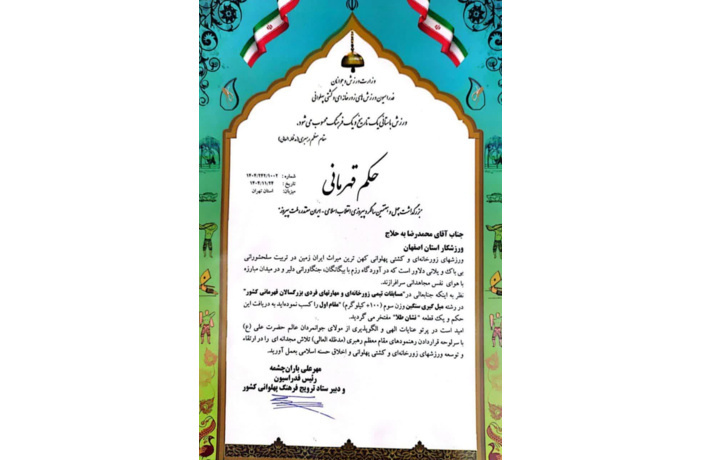 وزارت ورزش و جوانان
فدراسیون ورزش های زورخانه ای و کشتی پهلوانی
ورزش باستانی یک تاریخ و یک فرهنگ محسوب می شود.
مقام معظم رهبری (مدظله العالی)
شماره : ۱۴۰۴/۲۴۲/۱۰۰۲
تاریخ : ۱۴۰۴/۱۱/۲۴
میزبان: استان تهران
حکم قهرمانی
بزرگداشت چهل و هفتمین سالگرد پیروزی انقلاب اسلامی - ایران مقتدر و ملت پیروز
جناب آقای محمدرضا به حلاج
ورزشکار استان اصفهان
ورزشهای زورخانه‌ای و کشتی پهلوانی کهن ترین میراث ایران زمین در تربیت سلحشورانی
بی باک و یلانی دلاور است که در آوردگاه رزم با بیگانگان، جنگاورانی دلیر و در میدان مبارزه
با هوای نفس مجاهدانی سرافرازند.
نظر به اینکه جنابعالی در "مسابقات تیمی زورخانه‌ای و مهارتهای فردی بزرگسالان قهرمانی کشور"
در رشته میل گیری سنگین وزن سوم (۱۰۰+ کیلوگرم) "مقام اول" را کسب نموده‌اید به دریافت این
حکم و یک قطعه " نشان طلا" مفتخر می گردید.
امید است در پرتو عنایات الهی و الگوپذیری از مولای جوانمردان عالم حضرت علی (ع)
با سرلوحه قراردادن رهنمودهای مقام معظم رهبری (مدظله العالی) تلاش مجدانه ای را در ارتقاء
و توسعه ورزشهای زورخانه‌ای و کشتی پهلوانی و اخلاق حسنه اسلامی بعمل آورید.
مهرعلی باران‌چشمه
رئیس فدراسیون
و دبیر ستاد ترویج فرهنگ پهلوانی کشور